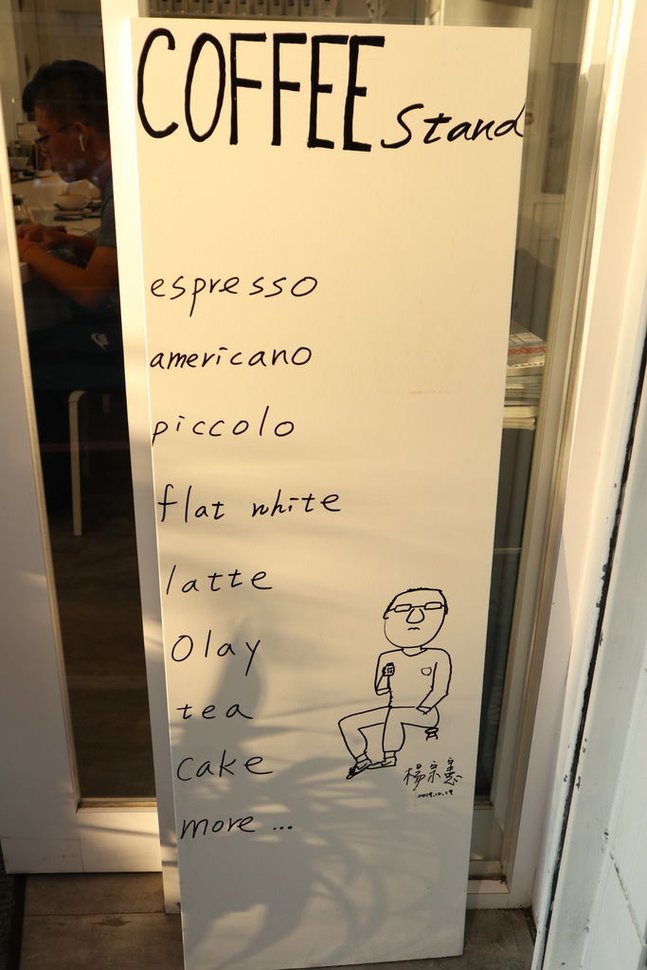 COFFEE Stand
espresso
americano
piccolo
flat white
latte
Olay
tea
cake
more ...
楊宗憲
2019.10.19